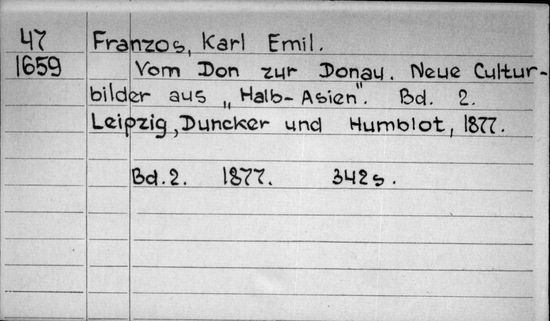 47 Franzos, Karl Emil.
1659 Vom Don zur Donau. Neue Cultur-
bilder aus „Halb-Asien". Bd. 2.
Leipzig, Duncker und Humblot, 1877.
Bd. 2. 1877. 342 s.